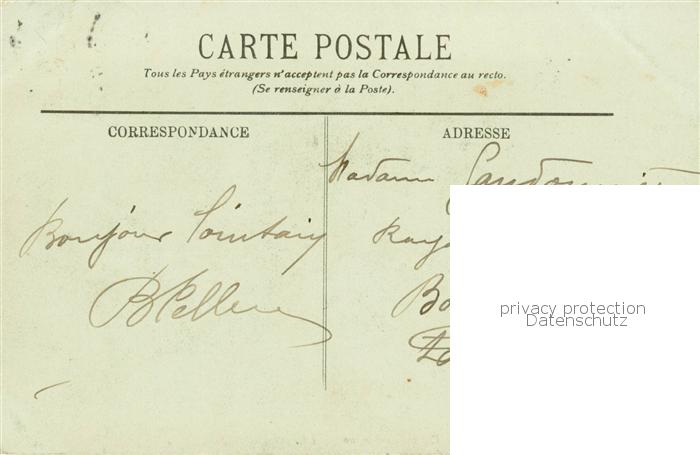 CARTE POSTALE
Tous les Pays étrangers n'acceptent pas la Correspondance au recto.
(Se renseigner à la Poste).
CORRESPONDANCE
ADRESSE
Madame
Bonjour lointain
privacy protection
Datenschutz